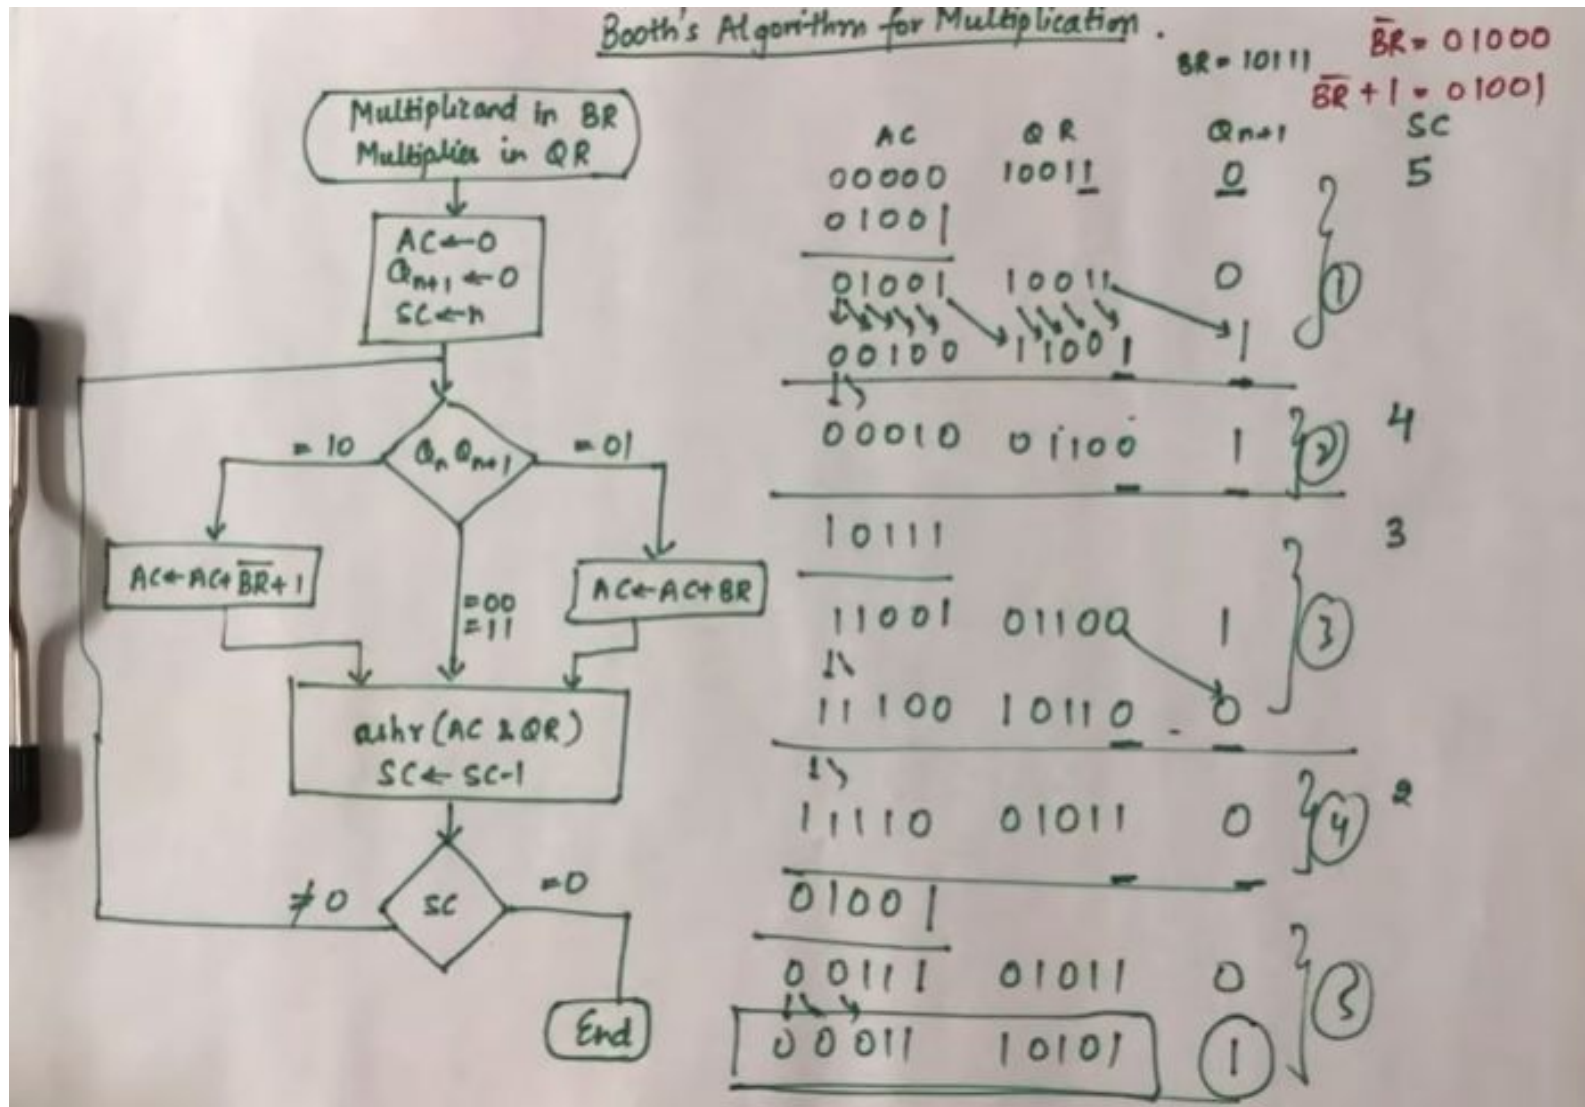 Booth's Algorithm for Multiplication.
BR = 10111
B̅R̅ = 01000
B̅R̅ + 1 = 01001
Multiplicand in BR
Multiplier in QR
AC←0
Qn+1 ←0
SC←n
Qn Qn+1
= 10
= 01
AC←AC+B̅R̅+1
=00
=11
AC←AC+BR
ashr (AC & QR)
SC← SC-1
SC
≠0
=0
End
AC QR Qn+1 SC
00000 10011 0 5
01001
01001 10011 0 1
00100 11001 1
00010 01100 1 2 4
10111 3
11001 01100 1 3
11100 10110 0
11110 01011 0 4 2
01001
00111 01011 0 5
00011 10101 1